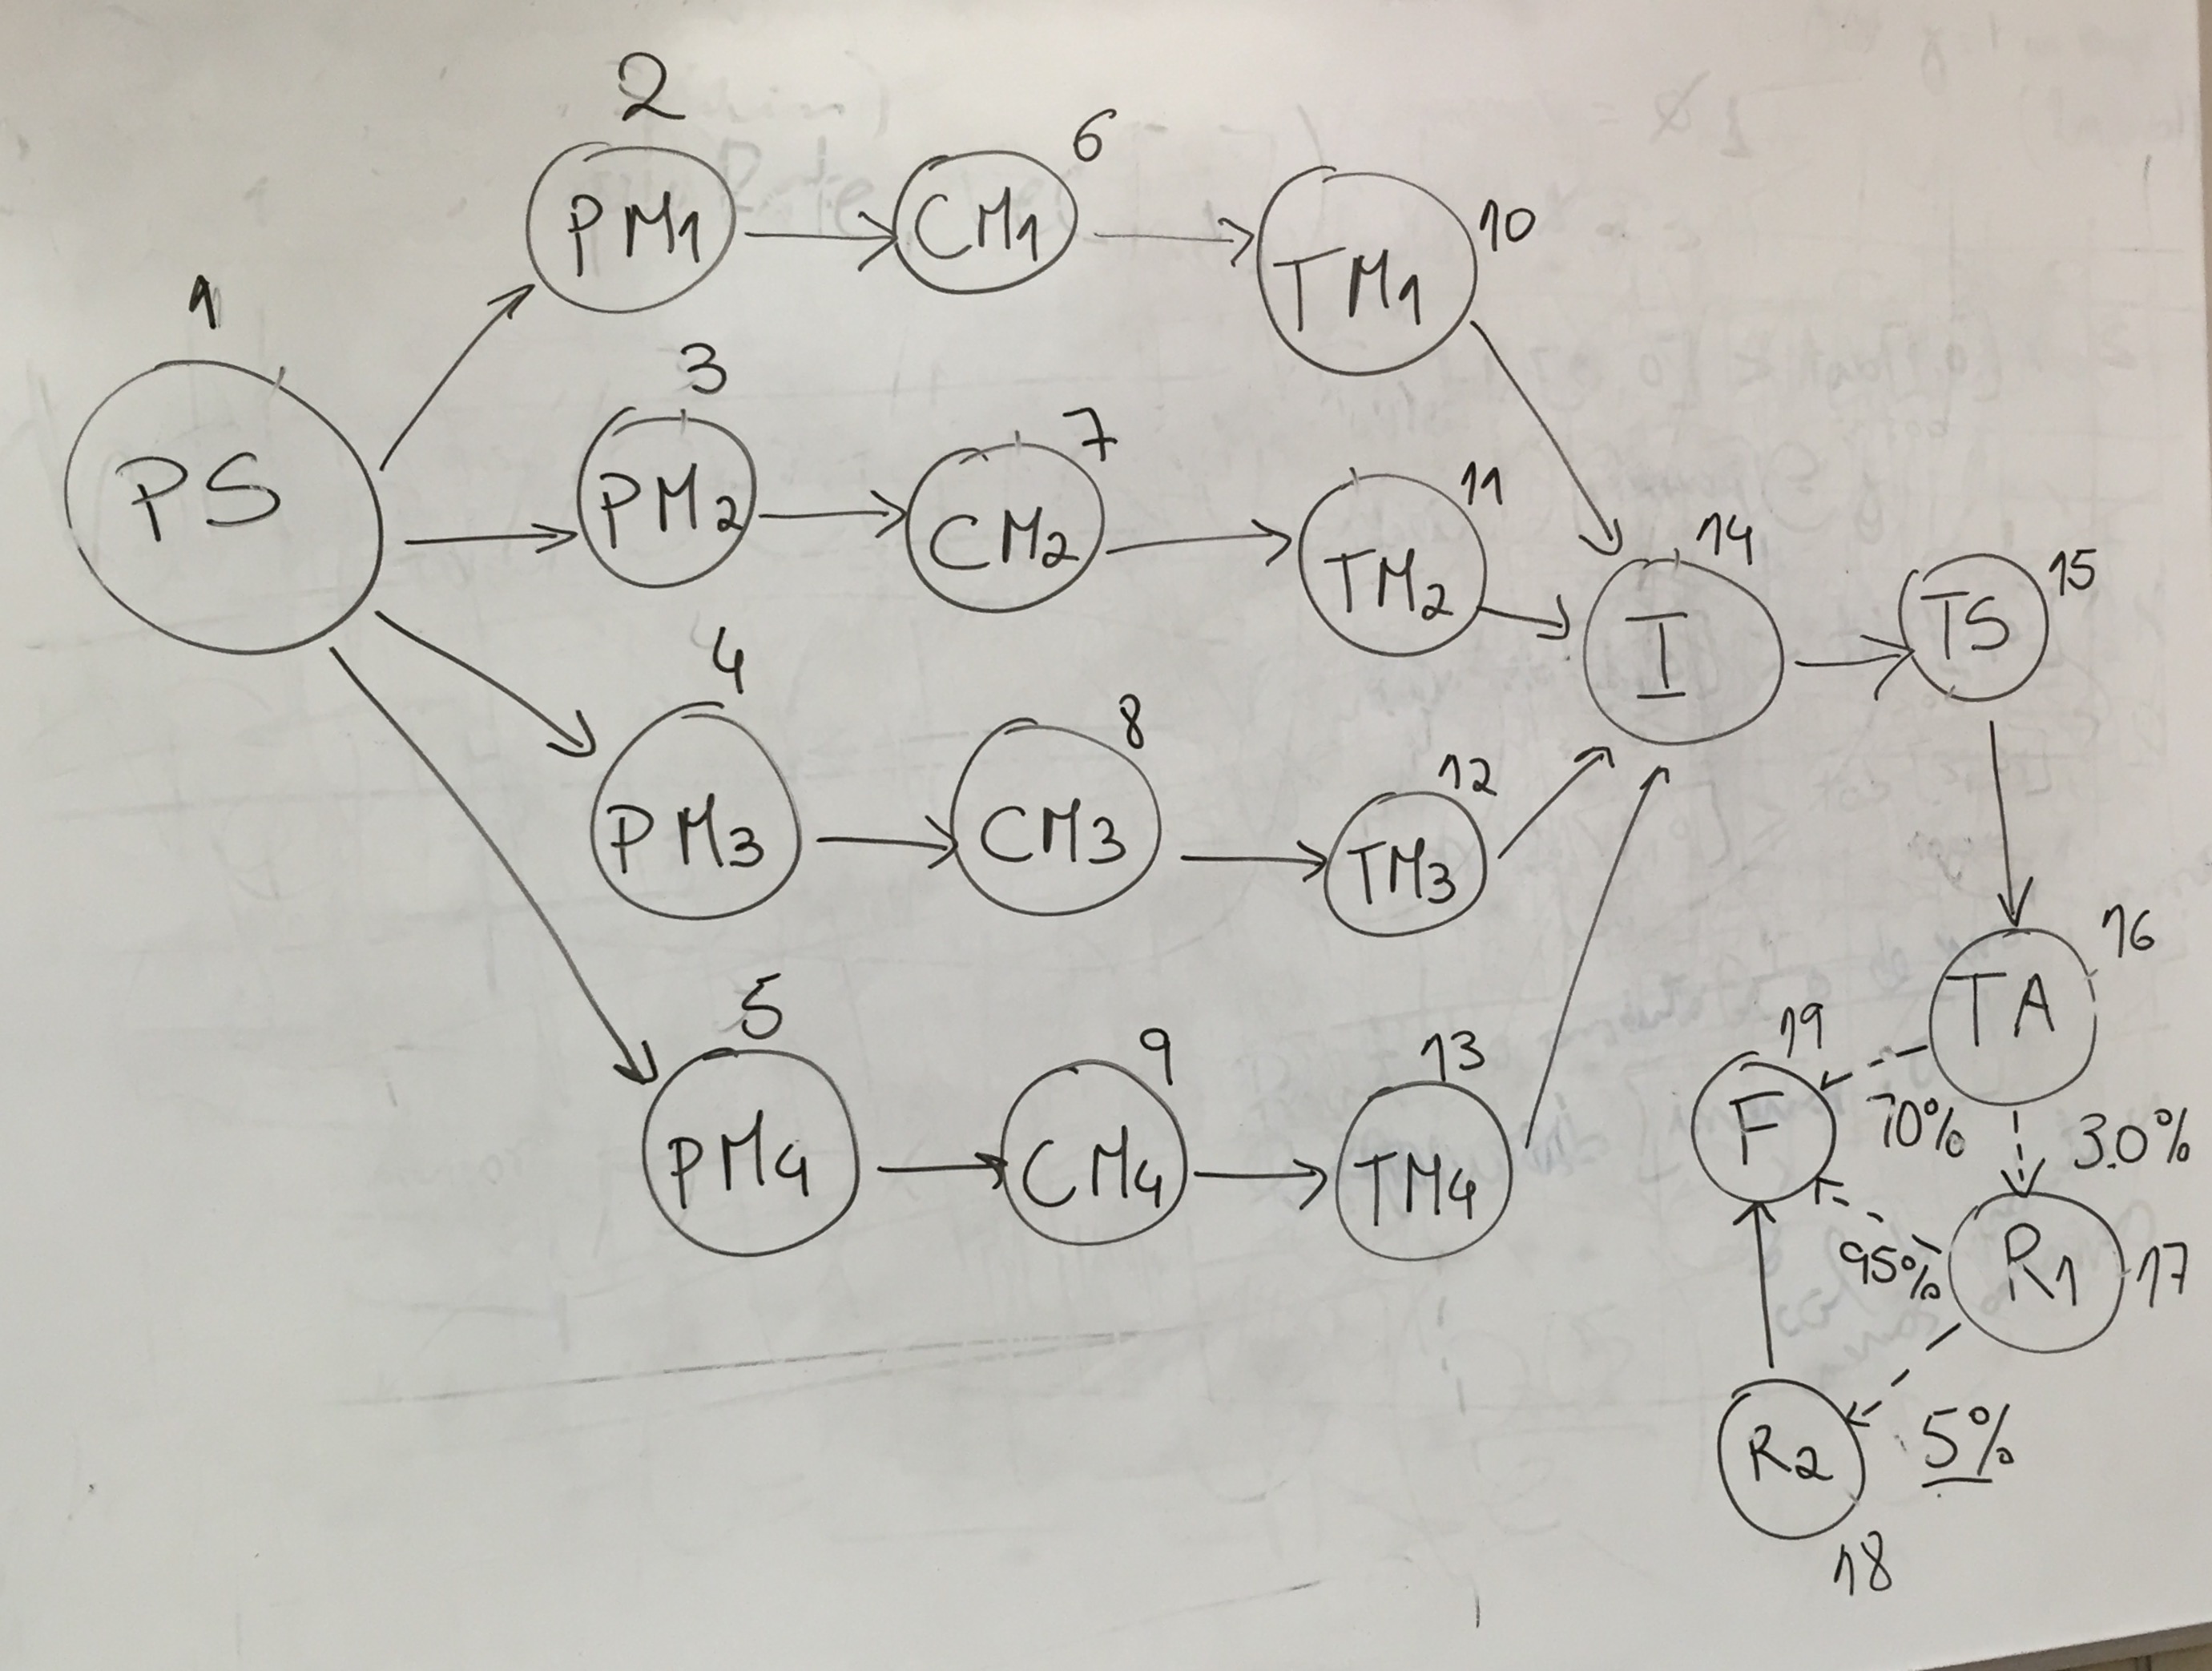 1
PS
2
PM1
6
CM1
10
TM1
3
PM2
7
CM2
11
TM2
4
PM3
8
CM3
12
TM3
5
PM4
9
CM4
13
TM4
14
I
15
TS
16
TA
70%
3.0%
19
F
95%
R1
17
5%
R2
18